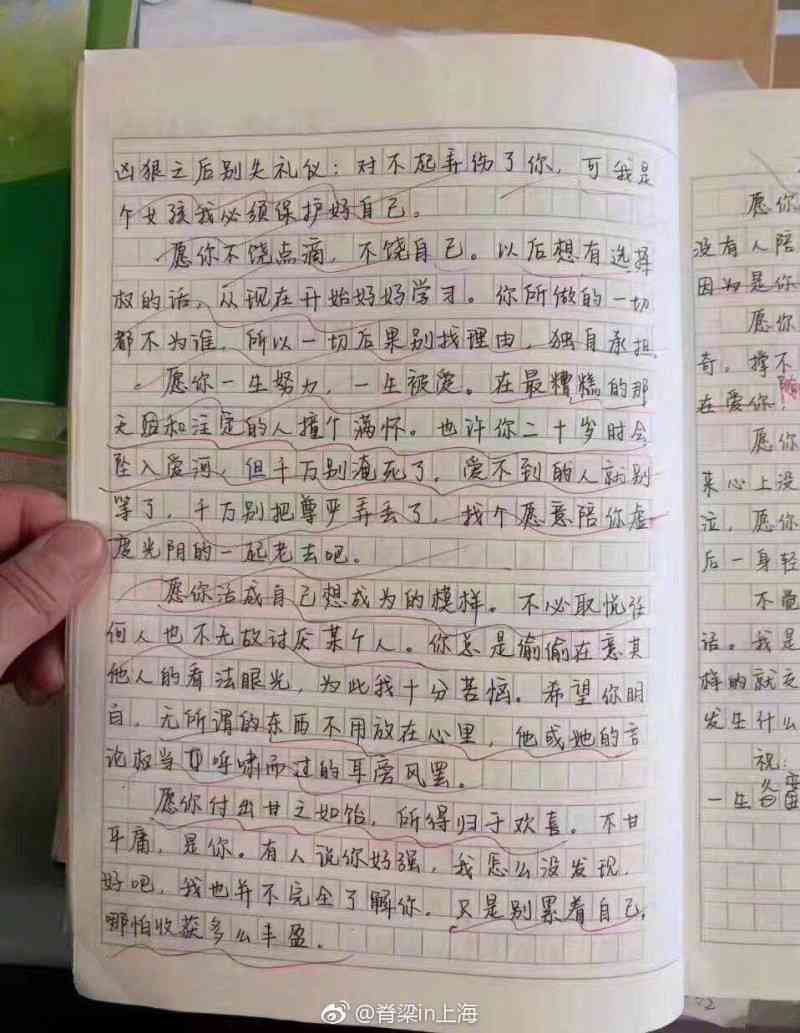 凶狠之后别失礼仪：对不起弄伤了你，可我是
个女孩我必须保护好自己。
愿你不饶点滴，不饶自己。以后想有选择
权的话，从现在开始好好学习。你所做的一切
都不为谁，所以一切后果别找理由，独自承担。
愿你一生努力，一生被爱。在最糟糕的那
天，和注定的人撞个满怀。也许你二十岁时会
坠入爱河，但千万别淹死了，爱不到的人就别
等了，千万别把尊严弄丢了，找个愿意陪你虚
度光阴的一起老去吧。
愿你活成自己想成为的模样。不必取悦任
何人也不无故讨厌某个人。你总是偷偷在意其
他人的看法眼光，为此我十分苦恼。希望你明
白，无所谓的东西不用放在心里，他或她的言
论权当呼啸而过的耳旁风罢。
愿你付出甘之如饴，所得归于欢喜。不甘
平庸，是你。有人说你好强，我怎么没发现，
好吧，我也并不完全了解你。只是别累着自己，
哪怕收获多么丰盈。
愿你
没有人陪
因为是你
愿你
奇，撑不
在爱你
愿你
来心上没
泣，愿你
后一身轻
不觉
话。我是
样的就
发生什么
祝：
一生
@脊梁in上海